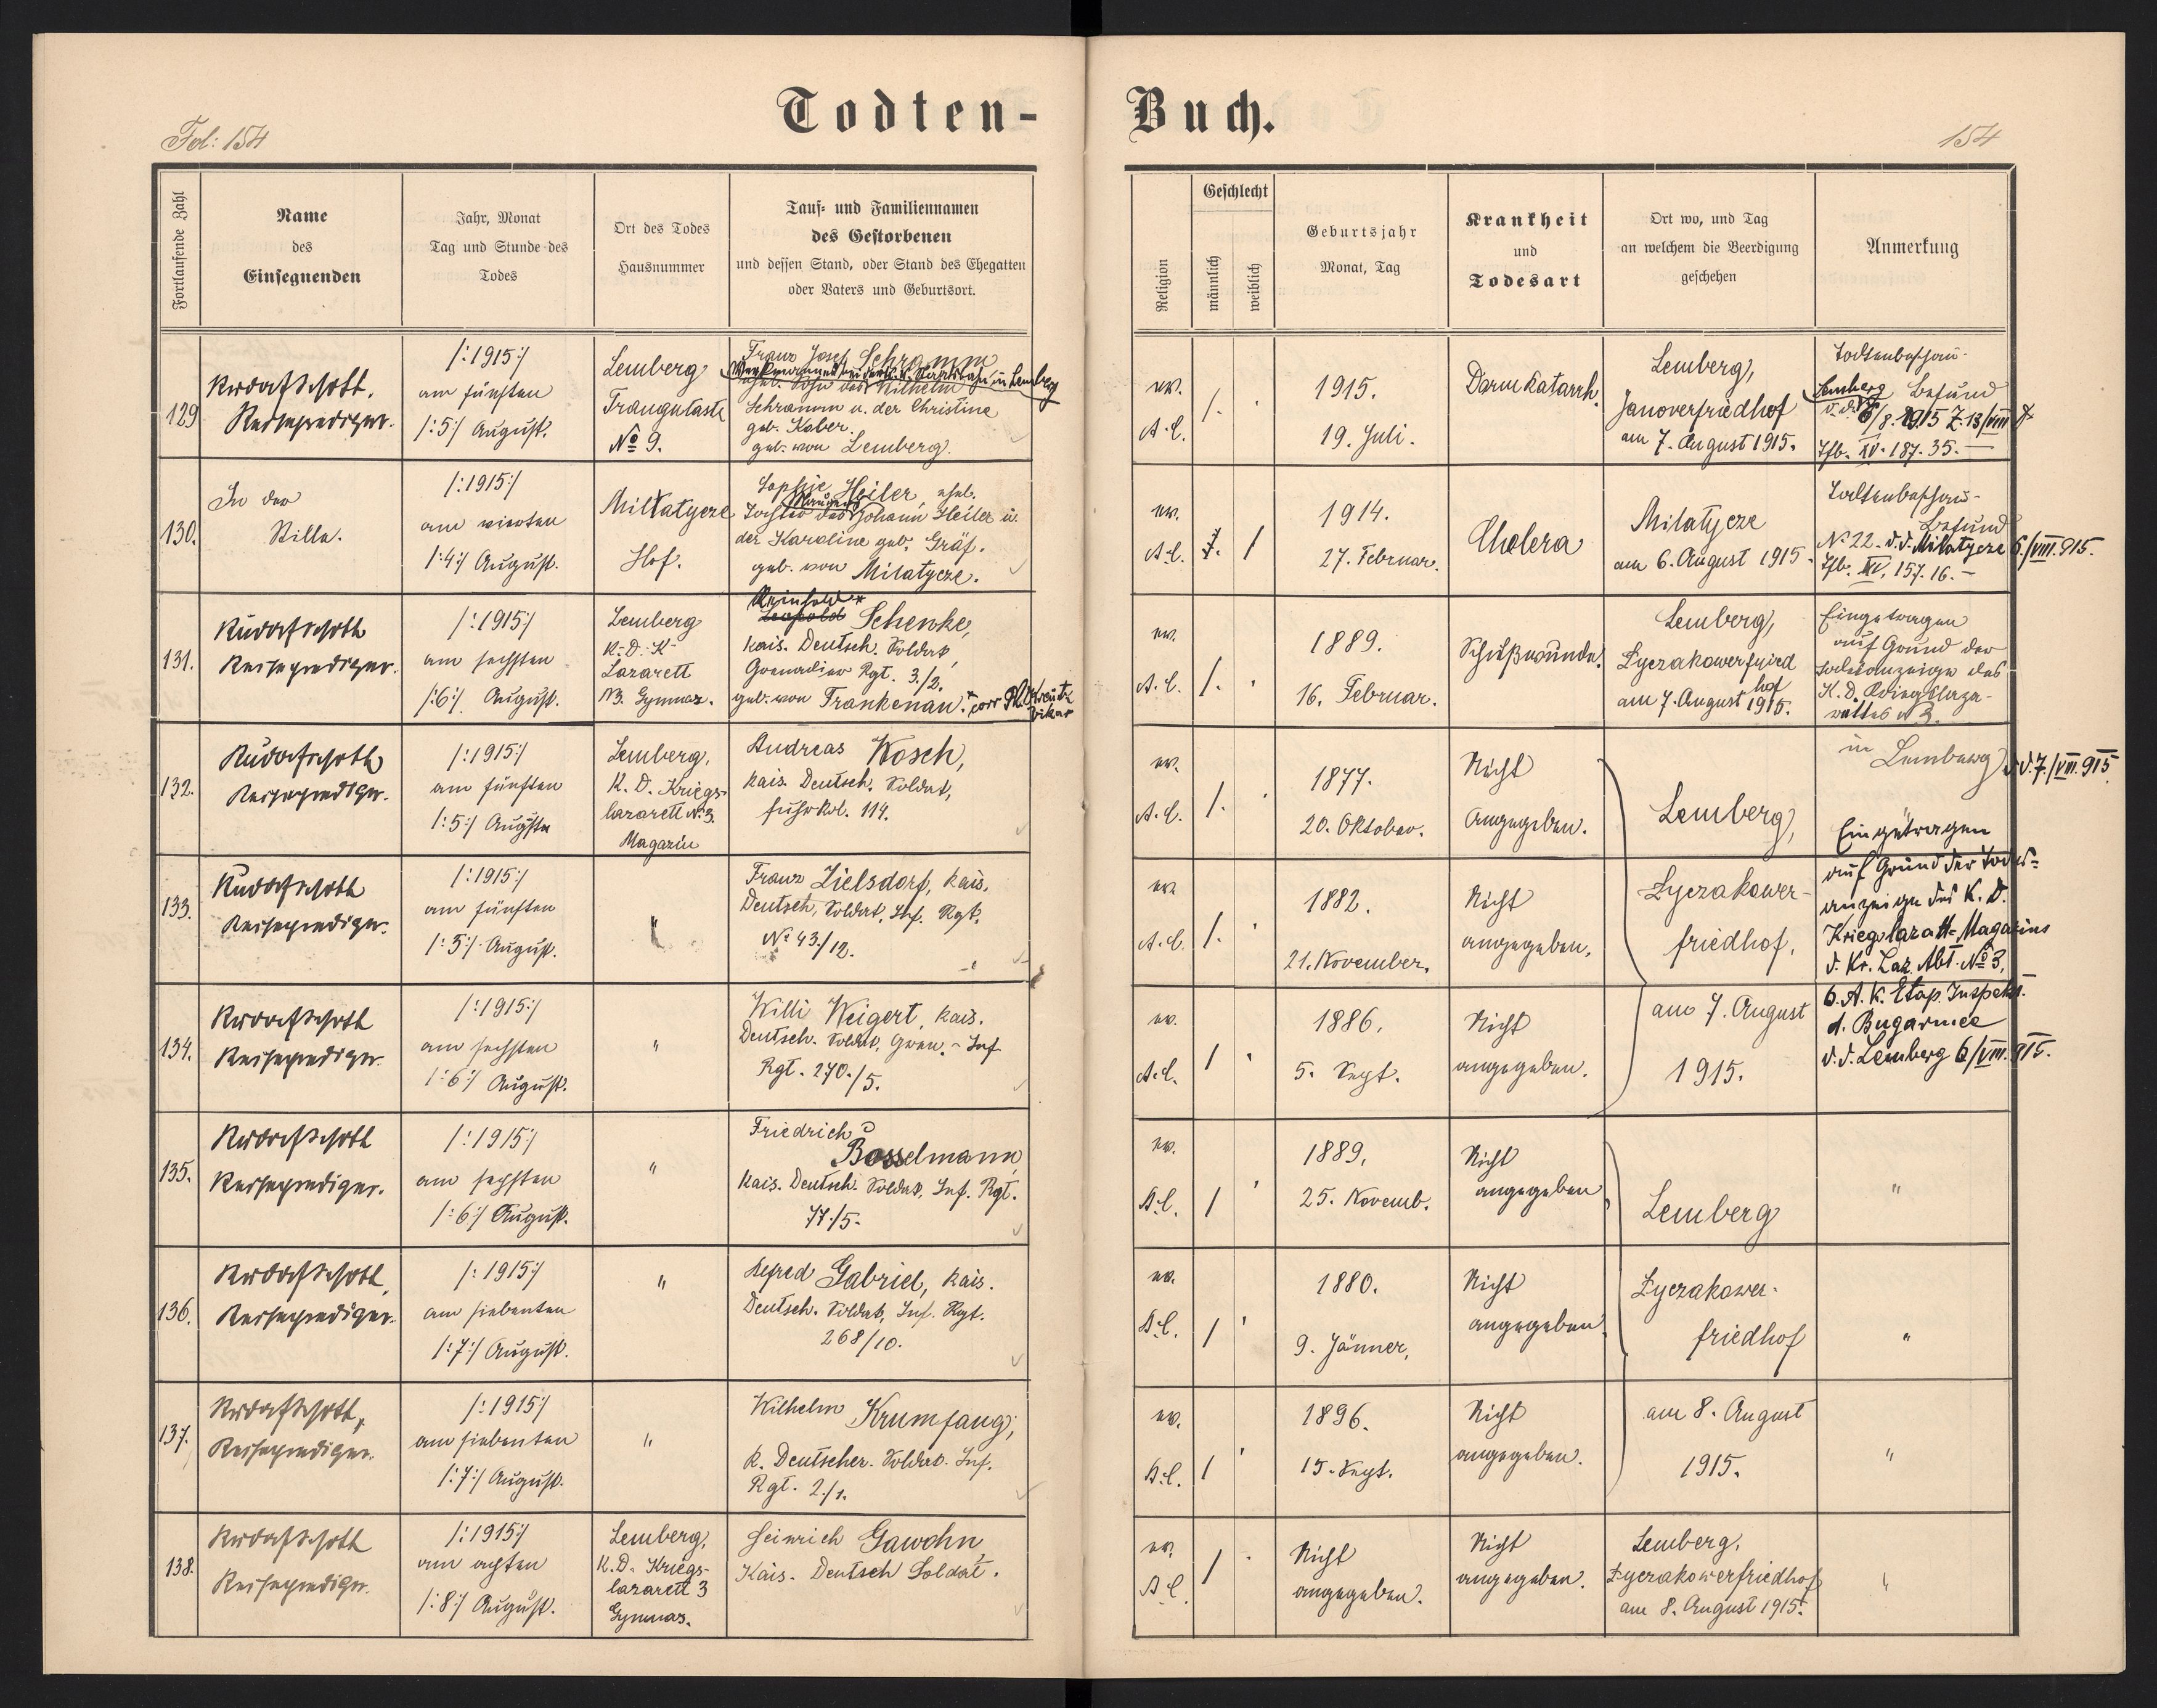 Todten-Buch.
Fol: 154
154
Fortlaufende Zahl
Name
des
Einsegnenden
Jahr, Monat
Tag und Stunde des
Todes
Ort des Todes
Hausnummer
Tauf- und Familiennamen
des Gestorbenen
und dessen Stand, oder Stand des Ehegatten
oder Vaters und Geburtsort.
Religion
Geschlecht
männlich
weiblich
Geburtsjahr
Monat, Tag
Krankheit
und
Todesart
Ort wo, und Tag
an welchem die Beerdigung
geschehen
Anmerkung
129
Reiseprediger.
/:1915:/
am fünften
/:5:/ August.
Lemberg
Traugutasti
No 9.
Franz Josef Schramm
in Lemberg
ehel. Sohn des Wilhelm
Schramm u. der Christine
geb. Kaber.
geb. von Lemberg.
ev.
A.C.
/.
1915.
19. Juli.
Darmkatarrh.
Lemberg,
Janoverfriedhof
am 7. August 1915.
Todtenbeschau-
Lemberg Befund
Tfb. XV. 187. 35.—
130.
In der
Stille.
/:1915:/
am vierten
/:4:/ August.
Milatycze
Hof.
Sophie Heiler, ehel.
Tochter des Johann Heiler u.
der Karoline geb. Gräf.
geb. von Milatycze.
ev.
A.C.
/
1914.
27. Februar.
Cholera
Milatycze
am 6. August 1915.
Todtenbeschau-
Befund
No 22. d.d. Milatycze 6./VIII. 915.
Tfb. XV. 157. 16.—
131.
Reiseprediger.
/:1915:/
am sechsten
/:6:/ August.
Lemberg
K. D. K.
Lazarett
No 3. Gymnas.
Reinhold*
Leopold Schenke,
kais. Deutsch. Soldat,
Grenadier Rgt. 3./2.
geb. von Frankenau. *corr
Vikar
ev.
A.C.
/.
1889.
16. Februar.
Schußwunde.
Lemberg,
Lyczakowerfried
hof
am 7. August 1915.
Eingetragen
auf Grund der
Todesanzeige des
K. D. Kriegslaza-
rettes No 3.
132.
Reiseprediger.
/:1915:/
am fünften
/:5:/ August
Lemberg,
K. D. Kriegs-
lazarett No 3.
Magazin
Andreas Kosch,
kais. Deutsch. Soldat,
Fuhrkol. 114.
ev.
A.C.
/.
1877.
20. Oktober.
Nicht
Angegeben.
Lemberg,
in Lemberg d.d. 7./VIII. 915
Eingetragen
133.
Reiseprediger.
/:1915:/
am fünften
/:5:/ August.
"
Franz Zielsdorf, kais.
Deutsch, Soldat, Inf. Rgt.
No 43./12.
ev.
A.C.
/.
1882.
21. November.
Nicht
angegeben.
Lyczakower-
friedhof,
auf Grund der Todes-
anzeige des K. D.
Kriegslazarett-Magazins
d. Kr. Laz. Abt. No 3,
134.
Reiseprediger.
/:1915:/
am sechsten
/:6:/ August.
"
Willi Weigert, kais.
Deutsch. Soldat, Gren.-Inf.
Rgt. 270./5.
ev.
A.C.
/
1886.
5. Sept.
Nicht
angegeben.
am 7. August
1915.
6. A. K. Etap. Inspekt.
d. Bugarmee
d.d. Lemberg 6/VIII. 915.
135.
Reiseprediger.
/:1915:/
am sechsten
/:6:/ August.
"
Friedrich
Bosselmann
kais. Deutsch. Soldat, Inf. Rgt.
77./5.
ev.
A.C.
/
1889.
25. Novemb.
Nicht
angegeben
Lemberg
"
136.
Reiseprediger.
/:1915:/
am siebenten
/:7:/ August.
"
Alfred Gabriel, kais.
Deutsch. Soldat, Inf. Rgt.
268/10.
ev.
A.C.
/
1880.
9. Jänner,
Nicht
angegeben
Lyczakower-
friedhof
"
137.
Reiseprediger.
/:1915:/
am siebenten
/:7:/ August.
"
Wilhelm Krumfang,
K. Deutscher. Soldat. Inf.
Rgt. 2./1.
ev.
A.C.
/
1896.
15. Sept.
Nicht
angegeben.
am 8. August
1915.
"
138.
Reiseprediger.
/:1915:/
am achten
/:8:/ August.
Lemberg,
K.D. Kriegs-
lazarett 3
Gymnas.
Heinrich Gawohn
Kais. Deutsch Soldat.
ev.
A.C.
/
Nicht
angegeben.
Nicht
angegeben.
Lemberg,
Lyczakowerfriedhof
am 8. August 1915.
"